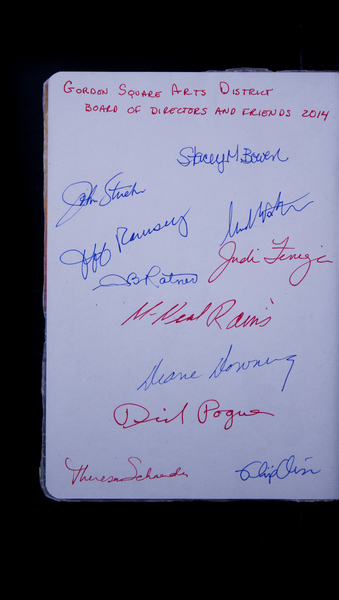 GORDON SQUARE ARTS DISTRICT
BOARD OF DIRECTORS AND FRIENDS 2014
Stacey M. Bowen
John
Jeff Ramsey
Judi Feniger
JB Ratner
M. Neal Rains
Diane Downing
Dick Pogue
Theresa Schneider